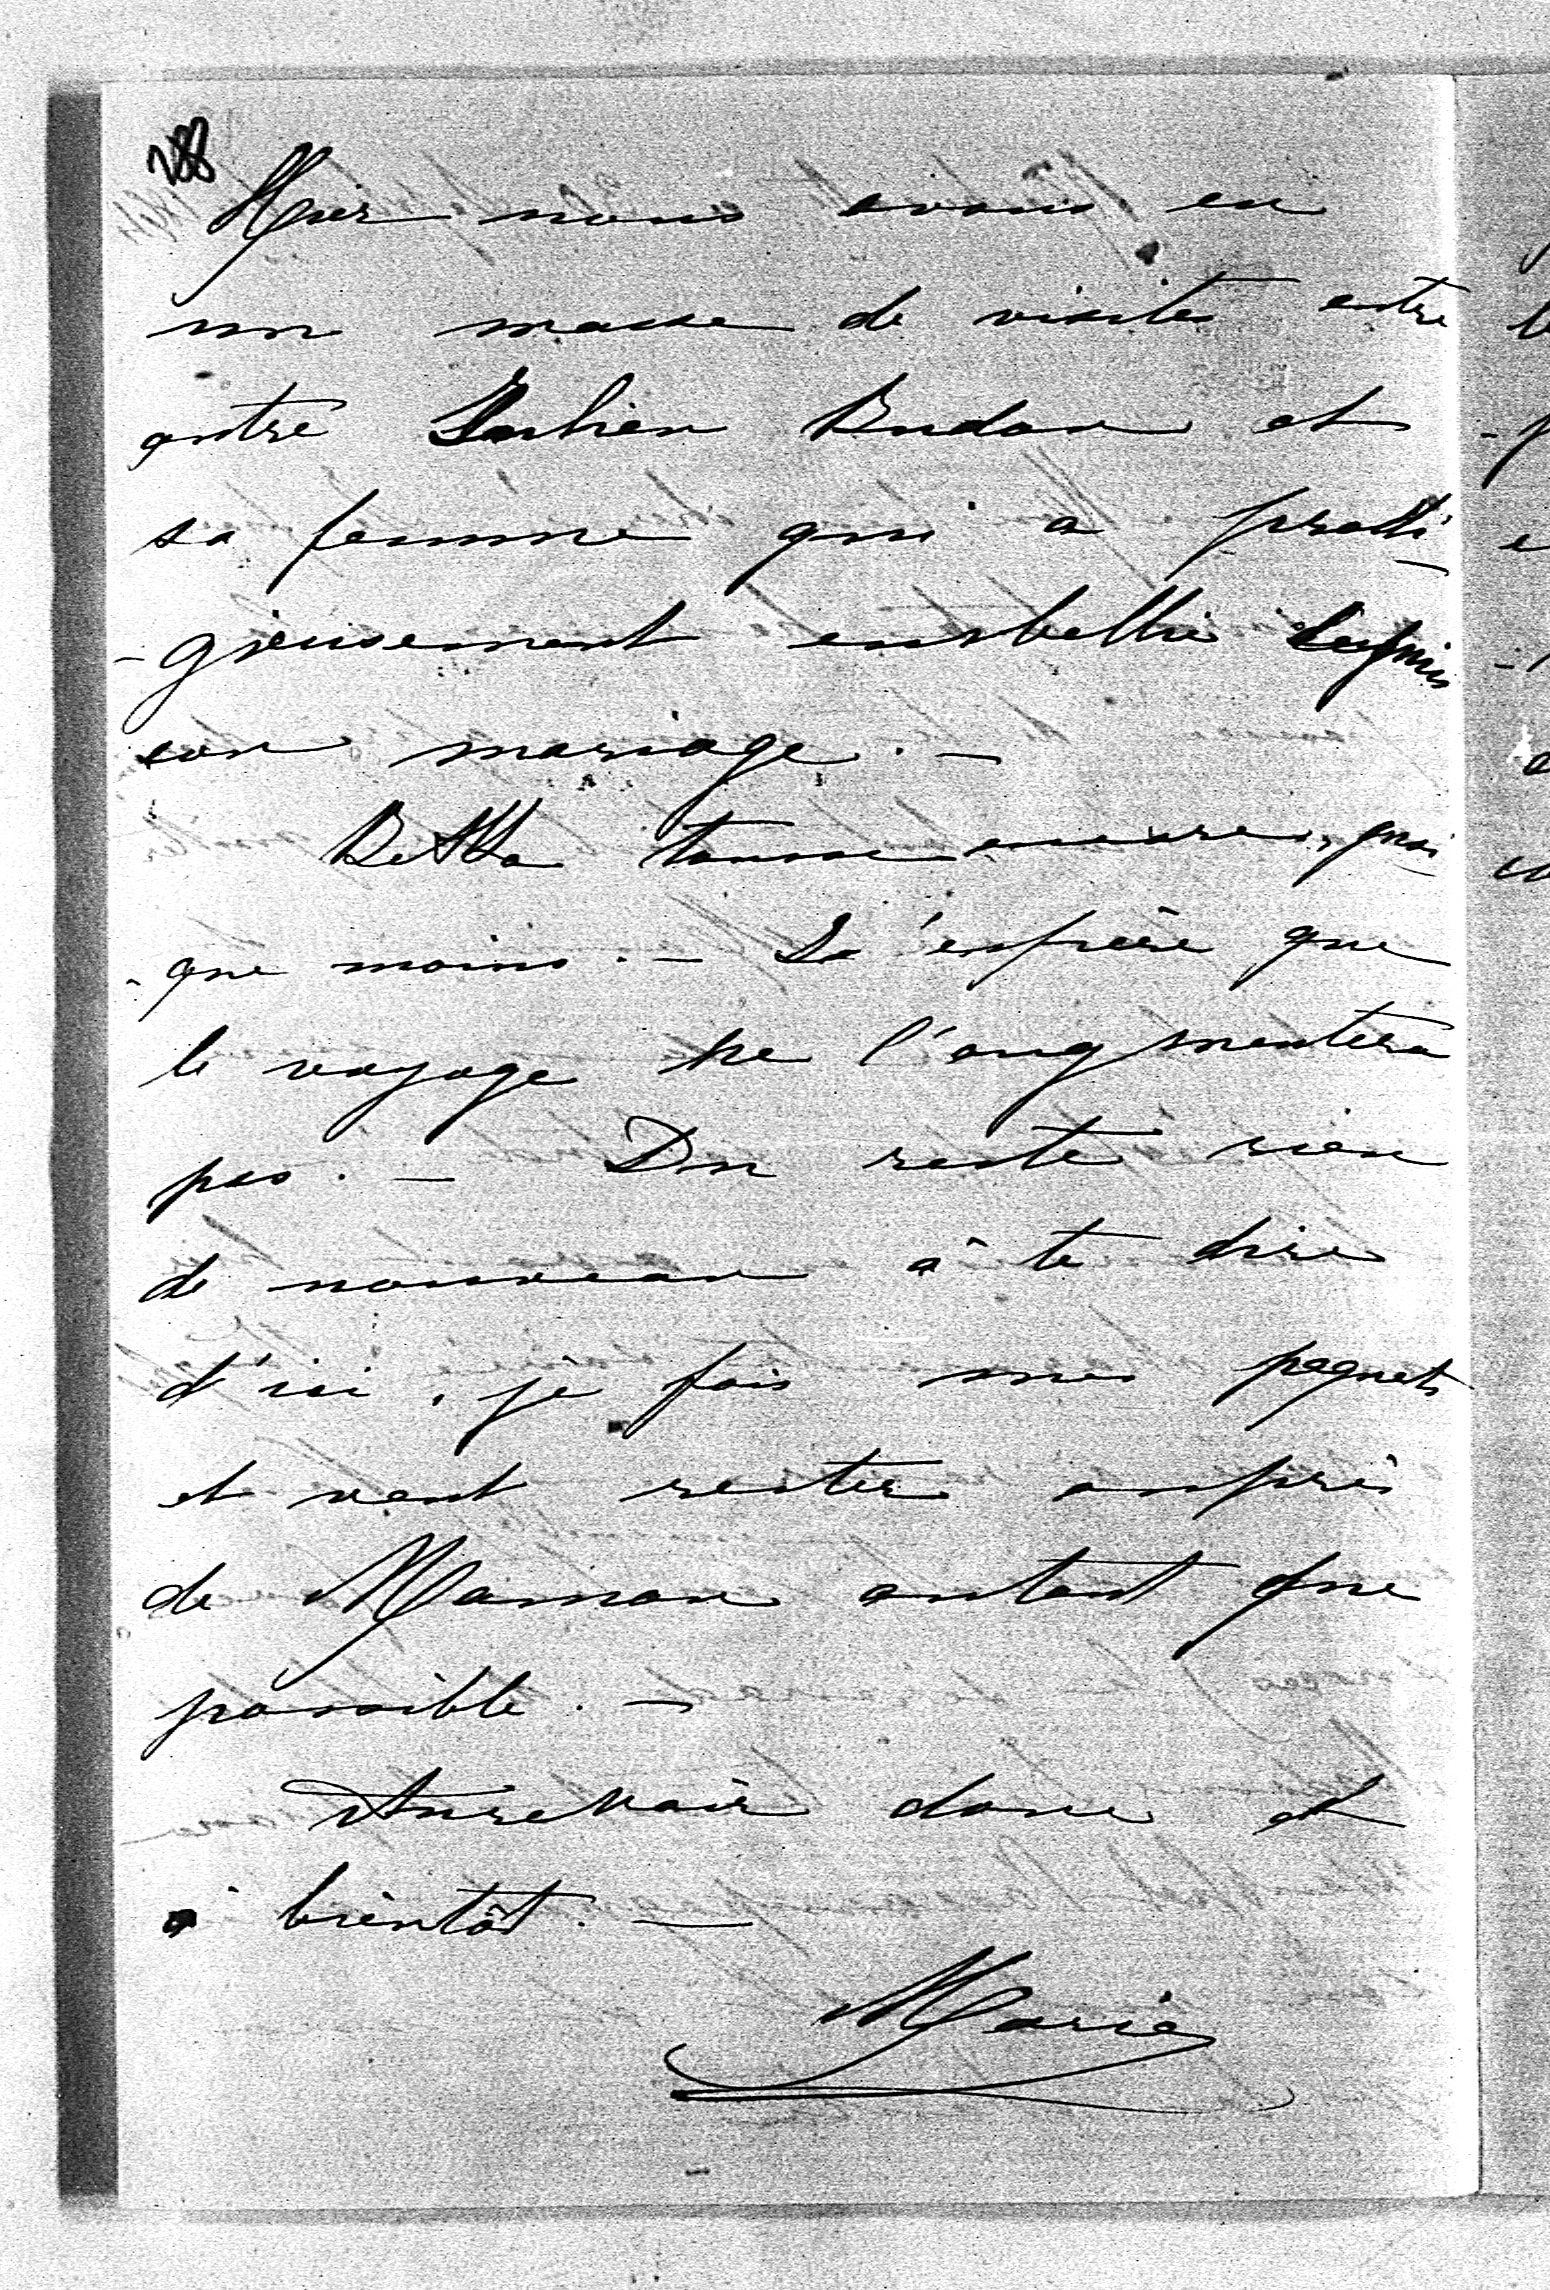 288
Hier nous avons eu
un masse de visites entre
autre Julien Budan et
sa femme qui a prodi
-gieusement embellie depuis
son mariage. —
Betta tousse encore, quoi
-que moins. — Je espère que
le voyage ne l'augmentera
pas. — Du reste rien
de nouveau à te dire
d'ici, je fais mes paquets
et veut rester auprès
de Maman autant que
possible. —
Aurevoir donc et
à bientôt. —
Marie